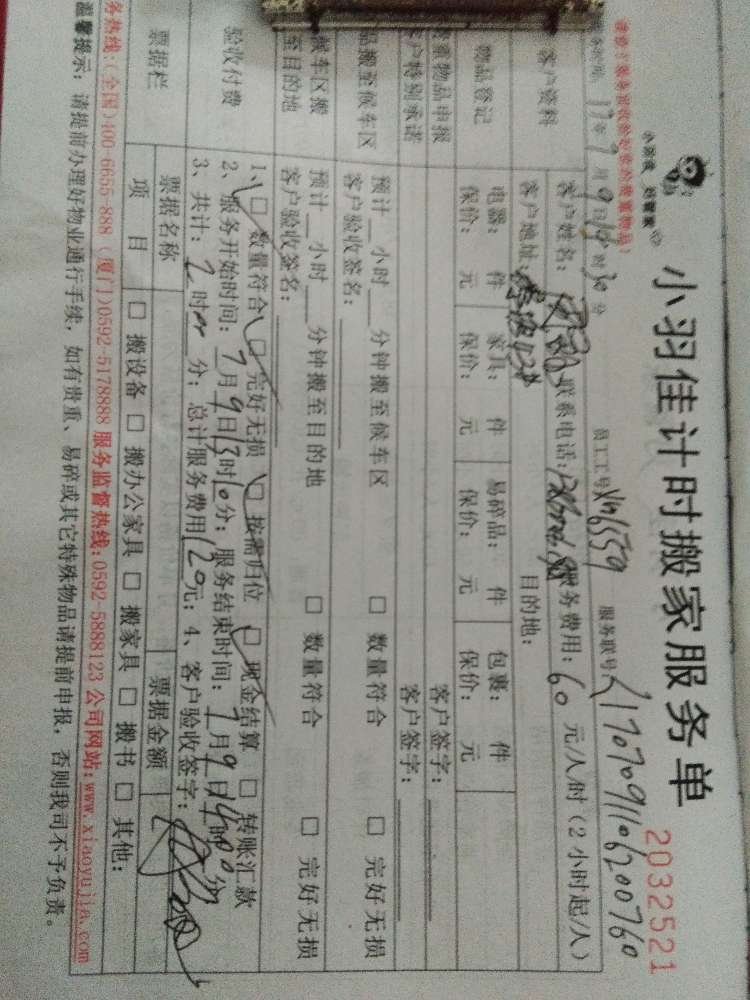 小羽佳计时搬家服务单
2032521
小羽佳 好管家
员工工号 服务联号 L170709110620760
17年7月9日 时30分
客户资料
客户姓名： 联系电话： 服务费用：60元/人/时（2小时起/人）
客户地址： 目的地：
物品登记
电器： 件 家具： 件 易碎品： 件 包裹： 件
保价： 元 保价： 元 保价： 元 保价： 元
贵重物品申报 客户签字：
客户特别承诺 客户签字：
品搬至候车区
预计__小时__分钟搬至候车区 □ 数量符合 □ 完好无损
客户验收签名：
候车区搬至目的地
预计__小时__分钟搬至目的地 □ 数量符合 □ 完好无损
客户验收签名：
验收付费
1、□ 数量符合 □ 完好无损 □ 按需归位 □ 现金结算 □ 转账汇款
2、服务开始时间：7月9日 时10分；服务结束时间：7月9日 时 分
3、共计：2时 分；总计服务费用120元；4、客户验收签字：
票据栏
票据名称 票据金额
项 目 □ 搬设备 □ 搬办公家具 □ 搬家具 □ 搬书 □ 其他：
务热线：（全国）400-6655-888（厦门）0592-5178888 服务监督热线：0592-5888123 公司网站：www.xiaoyujia.com
温馨提示：请提前办理好物业通行手续，如有贵重、易碎或其它特殊物品请提前申报，否则我司不予负责。